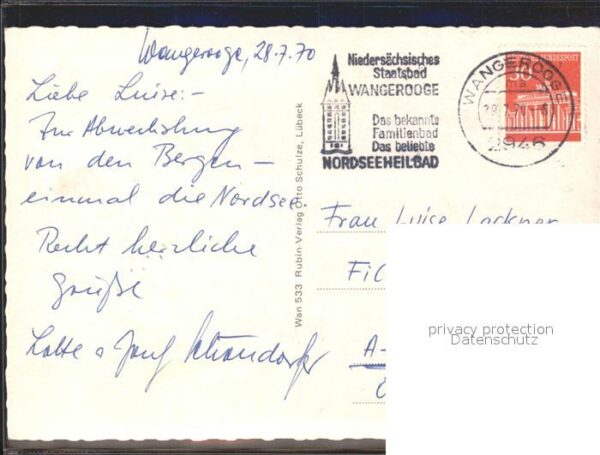 Wangerooge, 28.7.70
Liebe Luise:-
Zur Abwechslung
von den Bergen -
einmal die Nordsee.
Recht herzliche
Grüße
Lotte
Niedersächsisches
Staatsbad
WANGEROOGE
Das bekannte
Familienbad
Das beliebte
NORDSEEHEILBAD
WANGEROOGE
2946
30
BUNDESPOST
Wan 533 Rubin-Verlag Otto Schulze, Lübeck
Frau Luise Lackner
FiC
A-
privacy protection
Datenschutz